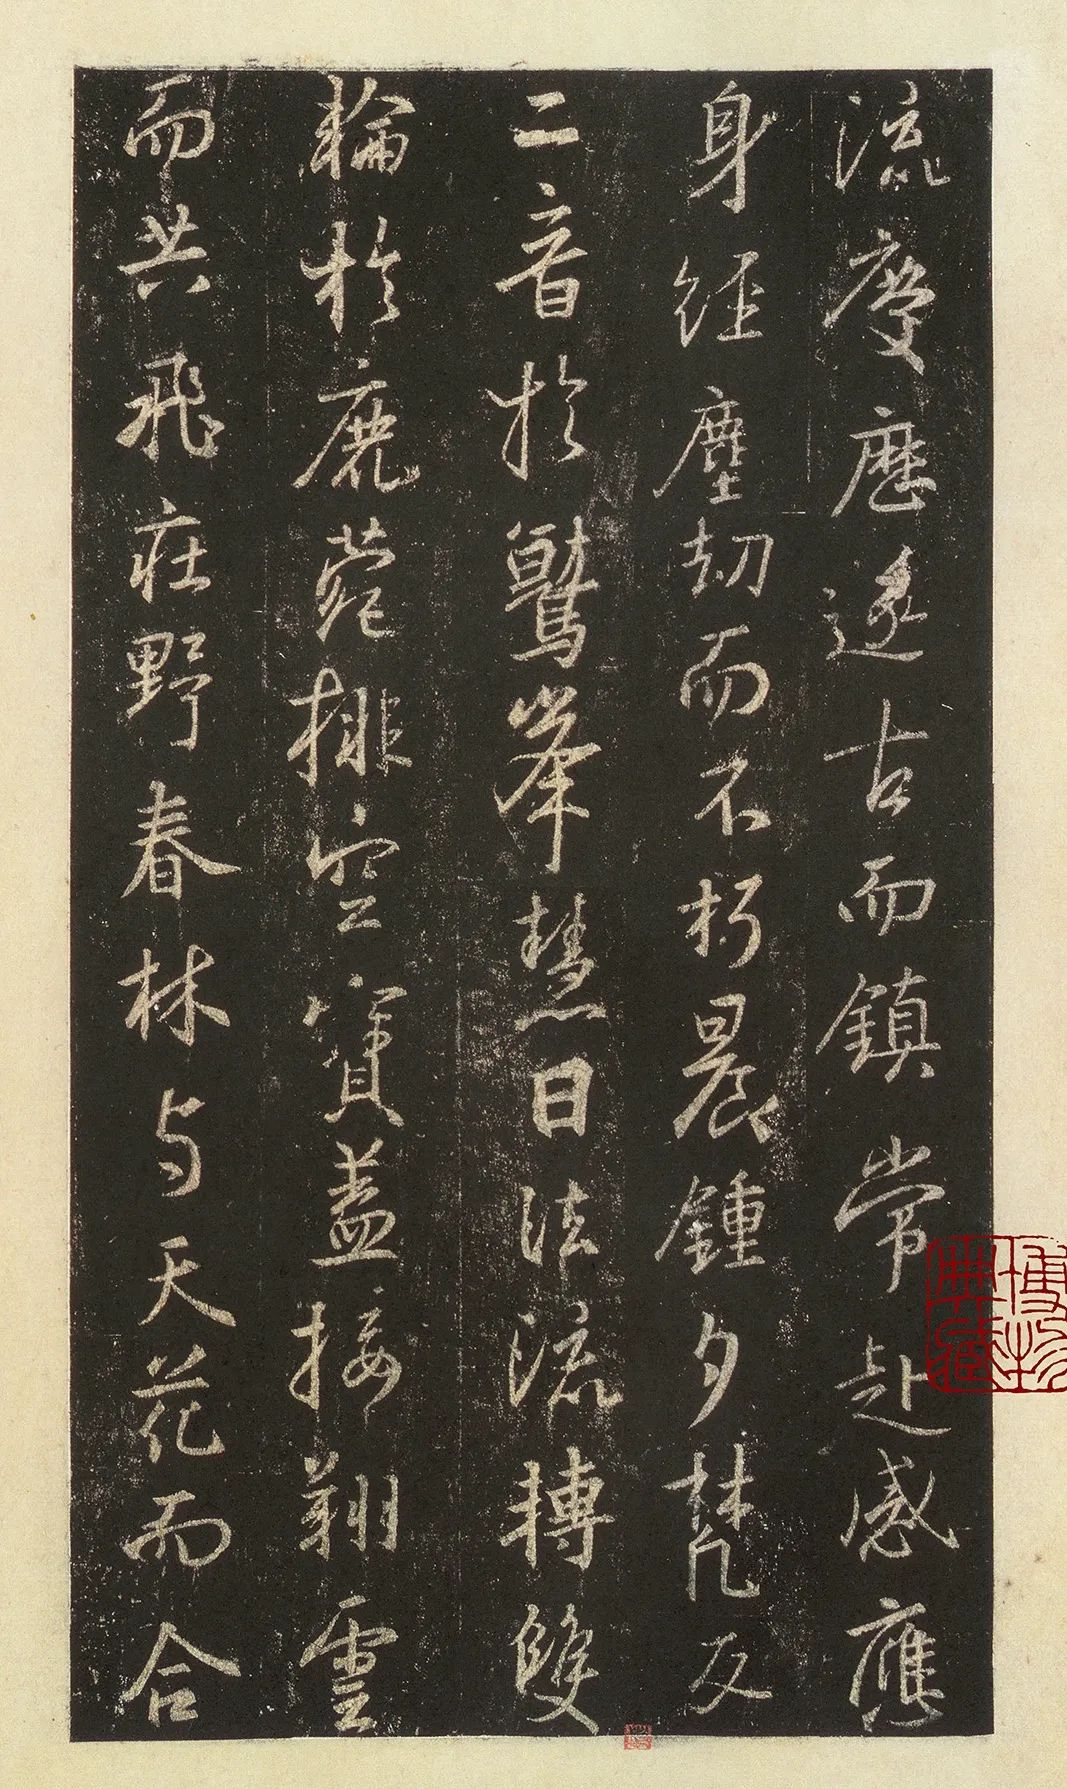 流慶歷遂古而鎮常赴感應
身經塵劫而不朽晨鍾夕梵交
二音於鷲峯慧日法流轉雙
輪於鹿菀排空寶蓋接翔雲
而共飛莊野春林与天花而合
博物